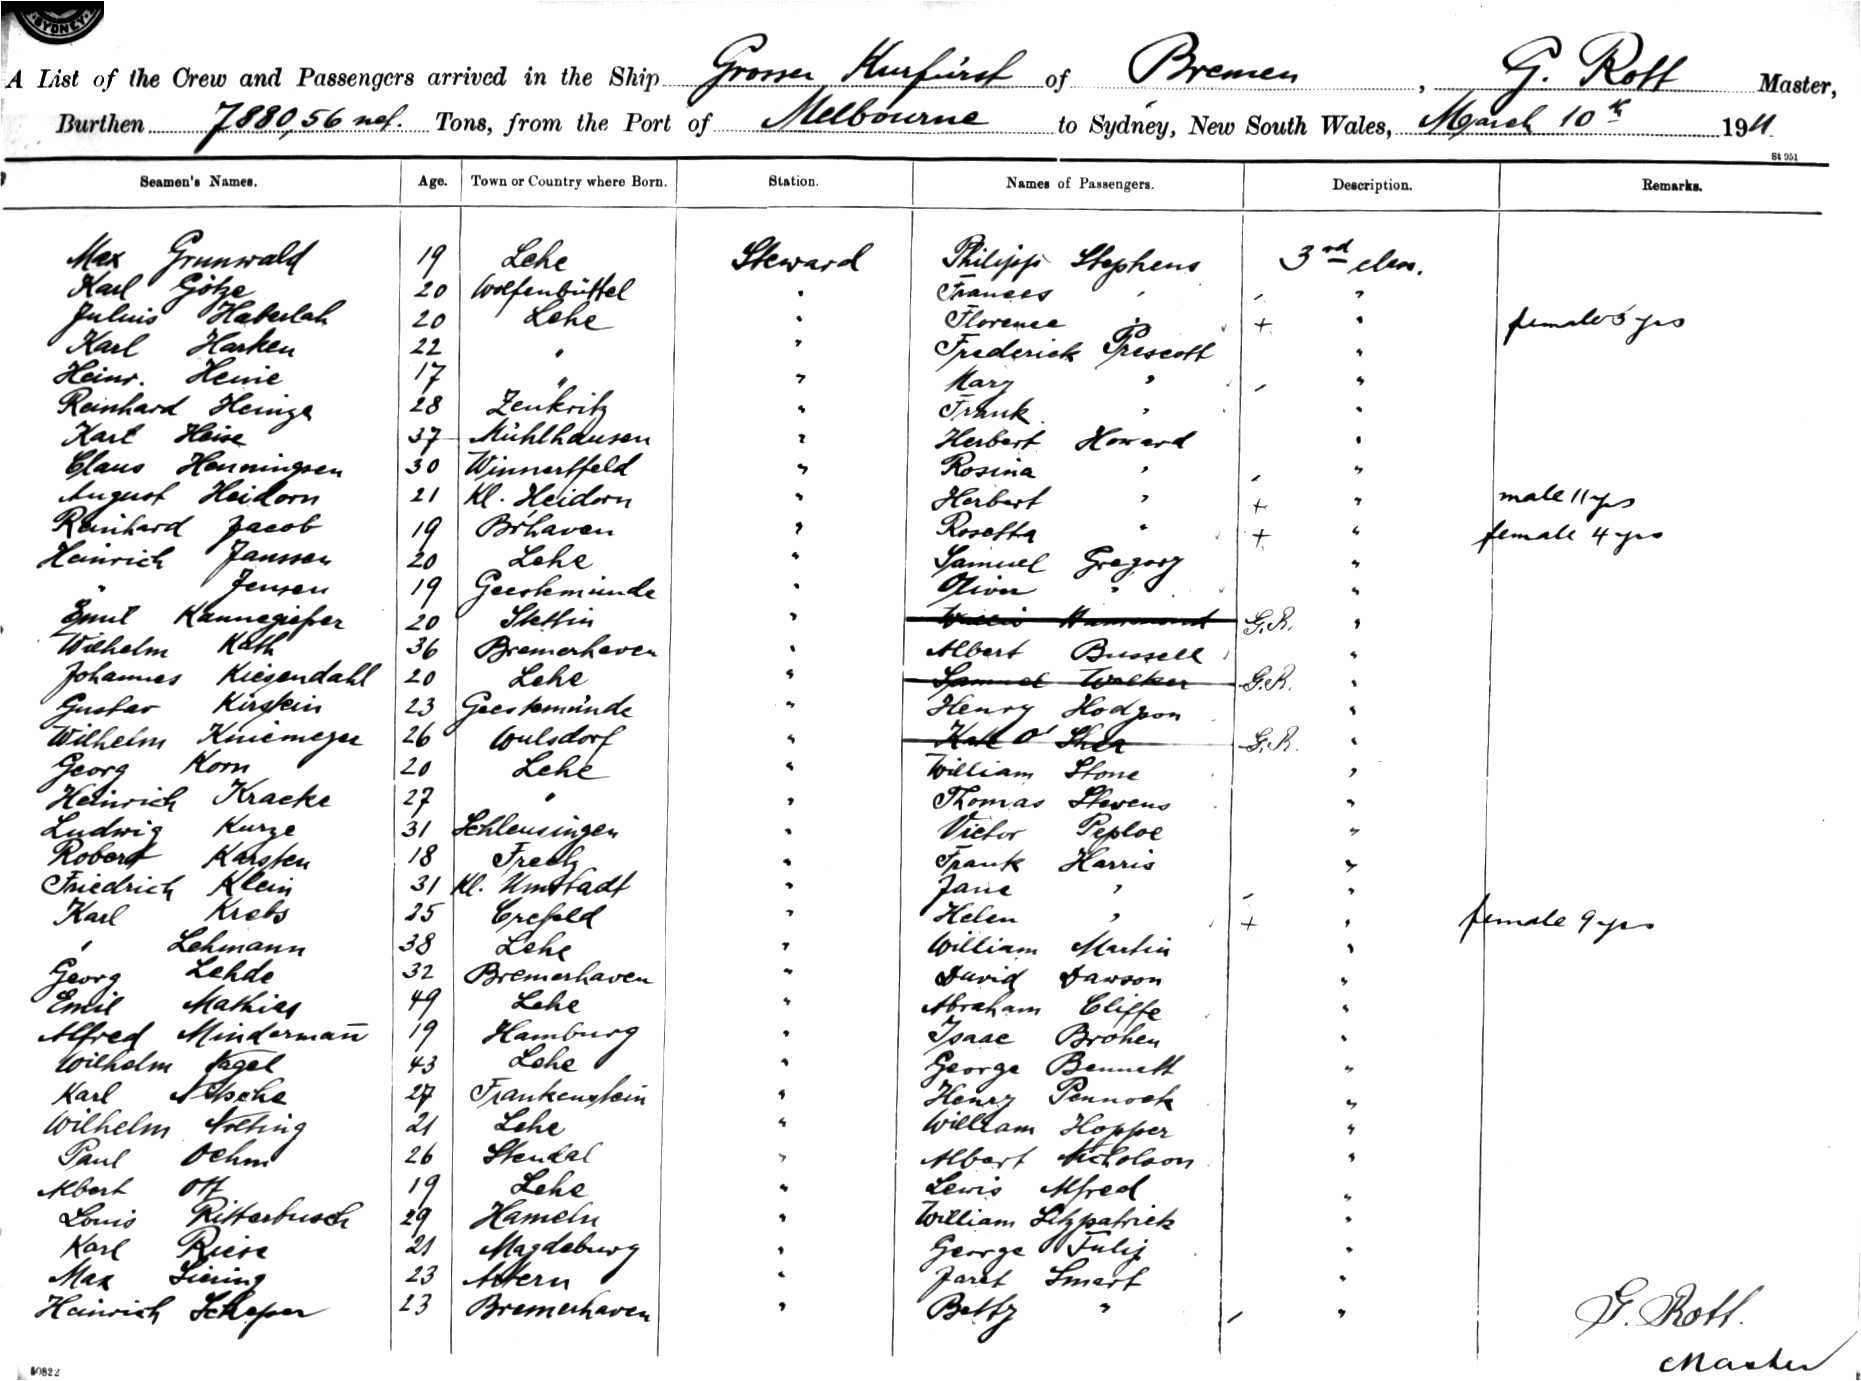 SYDNEY
A List of the Crew and Passengers arrived in the Ship Grosser Kurfürst of Bremen, G. Rott Master,
Burthen 7880,56 net. Tons, from the Port of Melbourne to Sydney, New South Wales, March 10th 1911
St 951
Seamen's Names. Age. Town or Country where Born. Station. Names of Passengers. Description. Remarks.
Max Grunwald 19 Lehe Steward Philipp Stephens 3rd class.
Karl Götze 20 Wolfenbüttel " Frances " "
Julius Haberlah 20 Lehe " Florence " + " female 5 yrs
Karl Harken 22 " " Frederick Prescott "
Heinr. Heine 17 " " Mary " "
Reinhard Heinze 28 Zeukritz " Frank " "
Karl Heise 37 Mühlhausen " Herbert Howard "
Claus Henningsen 30 Winnertfeld " Rosina " "
August Heidorn 21 Kl. Heidorn " Herbert " + " male 11 yrs
Reinhard Jacob 19 Br'haven " Rosetta " + " female 4 yrs
Heinrich Janssen 20 Lehe " Samuel Gregory "
" Jensen 19 Geestemünde " Oliver " "
Emil Kannegießer 20 Stettin " Hammond G.R. "
Wilhelm Kath 36 Bremerhaven " Albert Bussell "
Johannes Kiesendahl 20 Lehe " Samuel Walker G.R. "
Gustav Kirstein 23 Geestemünde " Henry Hodgson "
Wilhelm Kniemeyer 26 Wulsdorf " Kate O'Shea G.R. "
Georg Korn 20 Lehe " William Stone "
Heinrich Kracke 27 " " Thomas Stevens "
Ludwig Kurze 31 Schleusingen " Victor Peploe "
Robert Karsten 18 " Frank Harris "
Friedrich Klein 31 Kl. Umstadt " Jane " "
Karl Krebs 25 Crefeld " Helen " + " female 9 yrs
" Lehmann 38 Lehe " William Martin "
Georg Lehde 32 Bremerhaven " David Dawson "
Emil Mathias 49 Lehe " Abraham Cliffe "
Alfred Mindermañ 19 Hamburg " Isaac Brohen "
Wilhelm Nagel 43 Lehe " George Bennett "
Karl Nitsche 27 Frankenstein " Henry Pennock "
Wilhelm Nolting 21 Lehe " William Hopper "
Paul Oehm 26 Stendal " Albert Nicholson "
Albert Ott 19 Lehe " Lewis Alfred "
Louis Ritterbusch 29 Hameln " William Fitzpatrick "
Karl Riese 21 Magdeburg " George "
Max Siering 23 Artern " Smart "
Heinrich Scheper 23 Bremerhaven " Betty " "
G. Rott.
Master